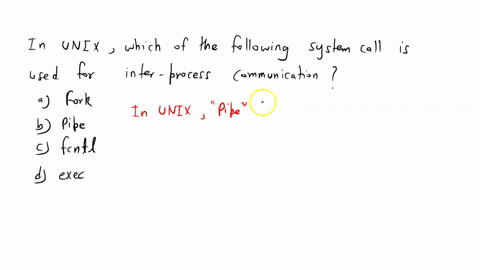 In UNIX, which of the following system call is
used for inter-process communication?
a) Fork
In UNIX, "Pipe"
b) Pipe
c) fcntl
d) exec